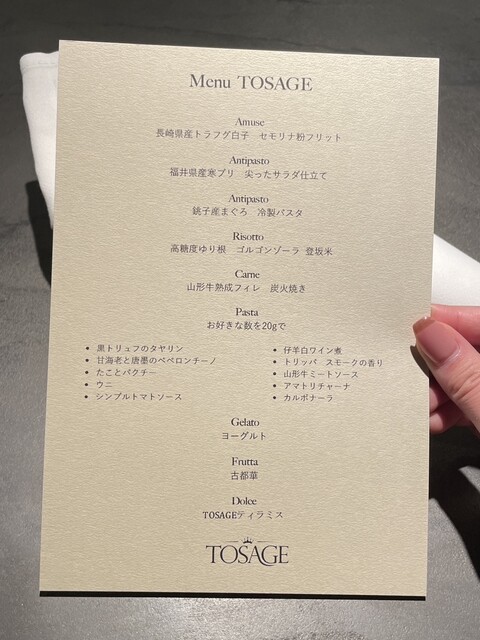 Menu TOSAGE
Amuse
長崎県産トラフグ白子 セモリナ粉フリット
Antipasto
福井県産寒ブリ 尖ったサラダ仕立て
Antipasto
銚子産まぐろ 冷製パスタ
Risotto
高糖度ゆり根 ゴルゴンゾーラ 登坂米
Carne
山形牛熟成フィレ 炭火焼き
Pasta
お好きな数を20gで
• 黒トリュフのタヤリン
• 甘海老と唐墨のペペロンチーノ
• たことパクチー
• ウニ
• シンプルトマトソース
• 仔羊白ワイン煮
• トリッパ スモークの香り
• 山形牛ミートソース
• アマトリチャーナ
• カルボナーラ
Gelato
ヨーグルト
Frutta
古都華
Dolce
TOSAGEティラミス
TOSAGE